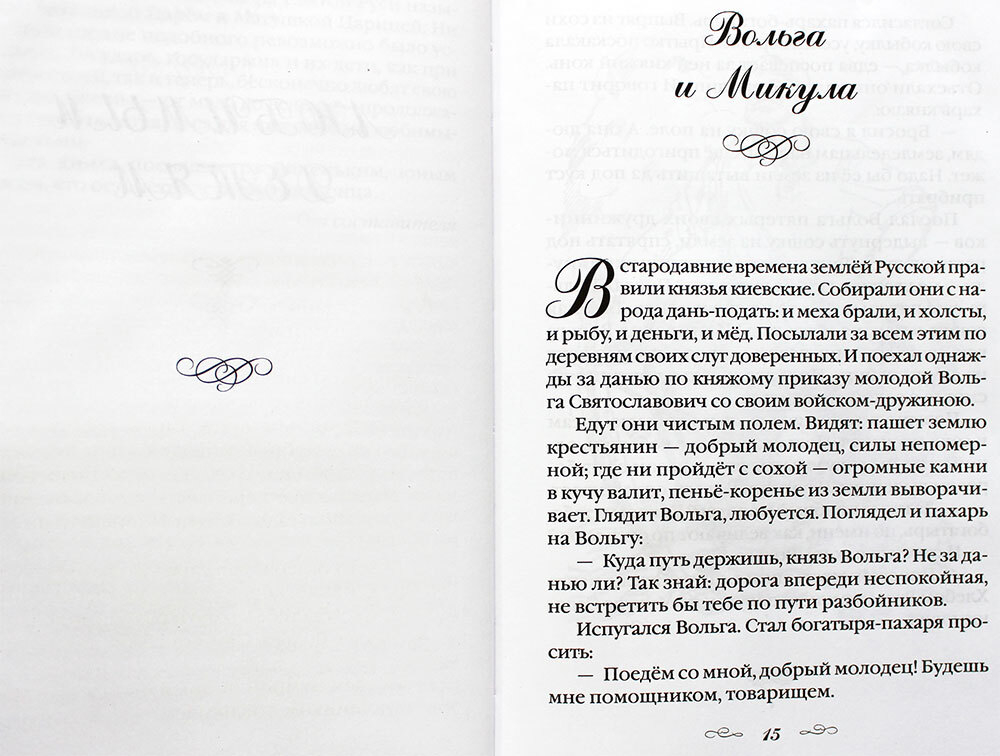 Вольга
и Микула
В стародавние времена землёй Русской пра-
вили князья киевские. Собирали они с на-
рода дань-подать: и меха брали, и холсты,
и рыбу, и деньги, и мёд. Посылали за всем этим по
деревням своих слуг доверенных. И поехал однаж-
ды за данью по княжому приказу молодой Воль-
га Святославович со своим войском-дружиною.
Едут они чистым полем. Видят: пашет землю
крестьянин — добрый молодец, силы непомер-
ной; где ни пройдёт с сохой — огромные камни
в кучу валит, пеньё-коренье из земли выворачи-
вает. Глядит Вольга, любуется. Поглядел и пахарь
на Вольгу:
— Куда путь держишь, князь Вольга? Не за да-
нью ли? Так знай: дорога впереди неспокойная,
не встретить бы тебе по пути разбойников.
Испугался Вольга. Стал богатыря-пахаря про-
сить:
— Поедём со мной, добрый молодец! Будешь
мне помощником, товарищем.
15